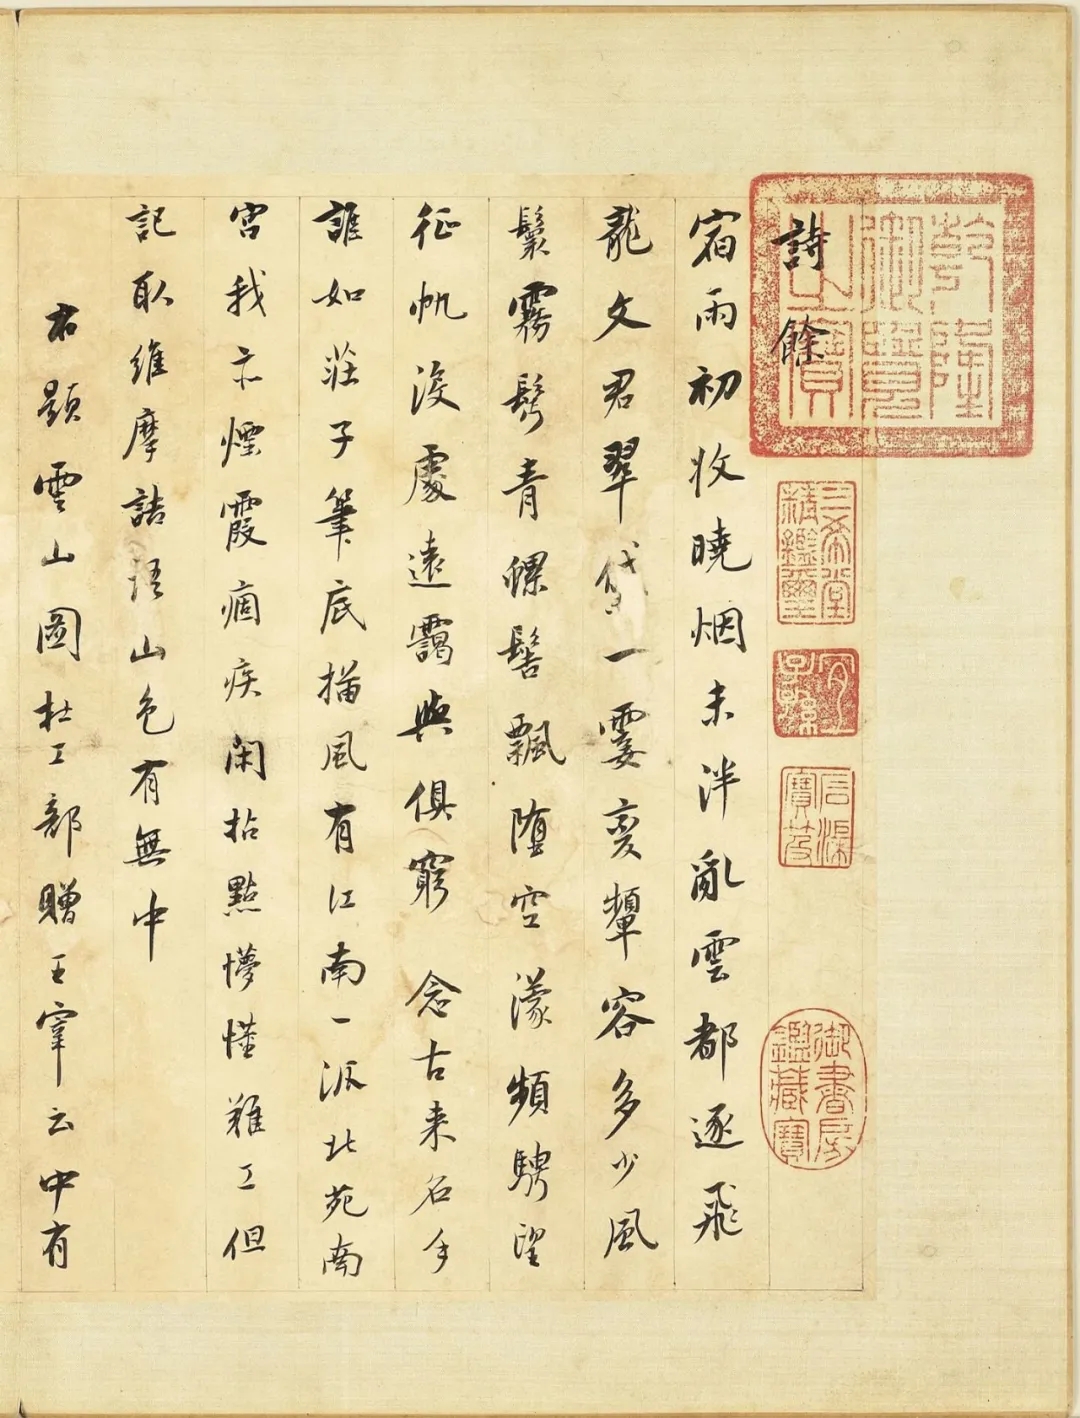 詩餘
宿雨初收曉烟未泮亂雲都逐飛
龍文君翠黛一霎變顰容多少風
鬟霧鬢青螺髻飄墮空濛頻騁望
征帆沒處遠靄與俱窮 念古来名手
誰如莊子筆底描風有江南一派北苑南
宮我亦煙霞痼疾閑拈點懵懂難工但
記取維摩詰語山色有無中
右題雲山圖杜工部贈王宰云中有
乾隆御覽之寶
三希堂精鑑璽
宜子孫
信渠寶笈
御書房鑑藏寶